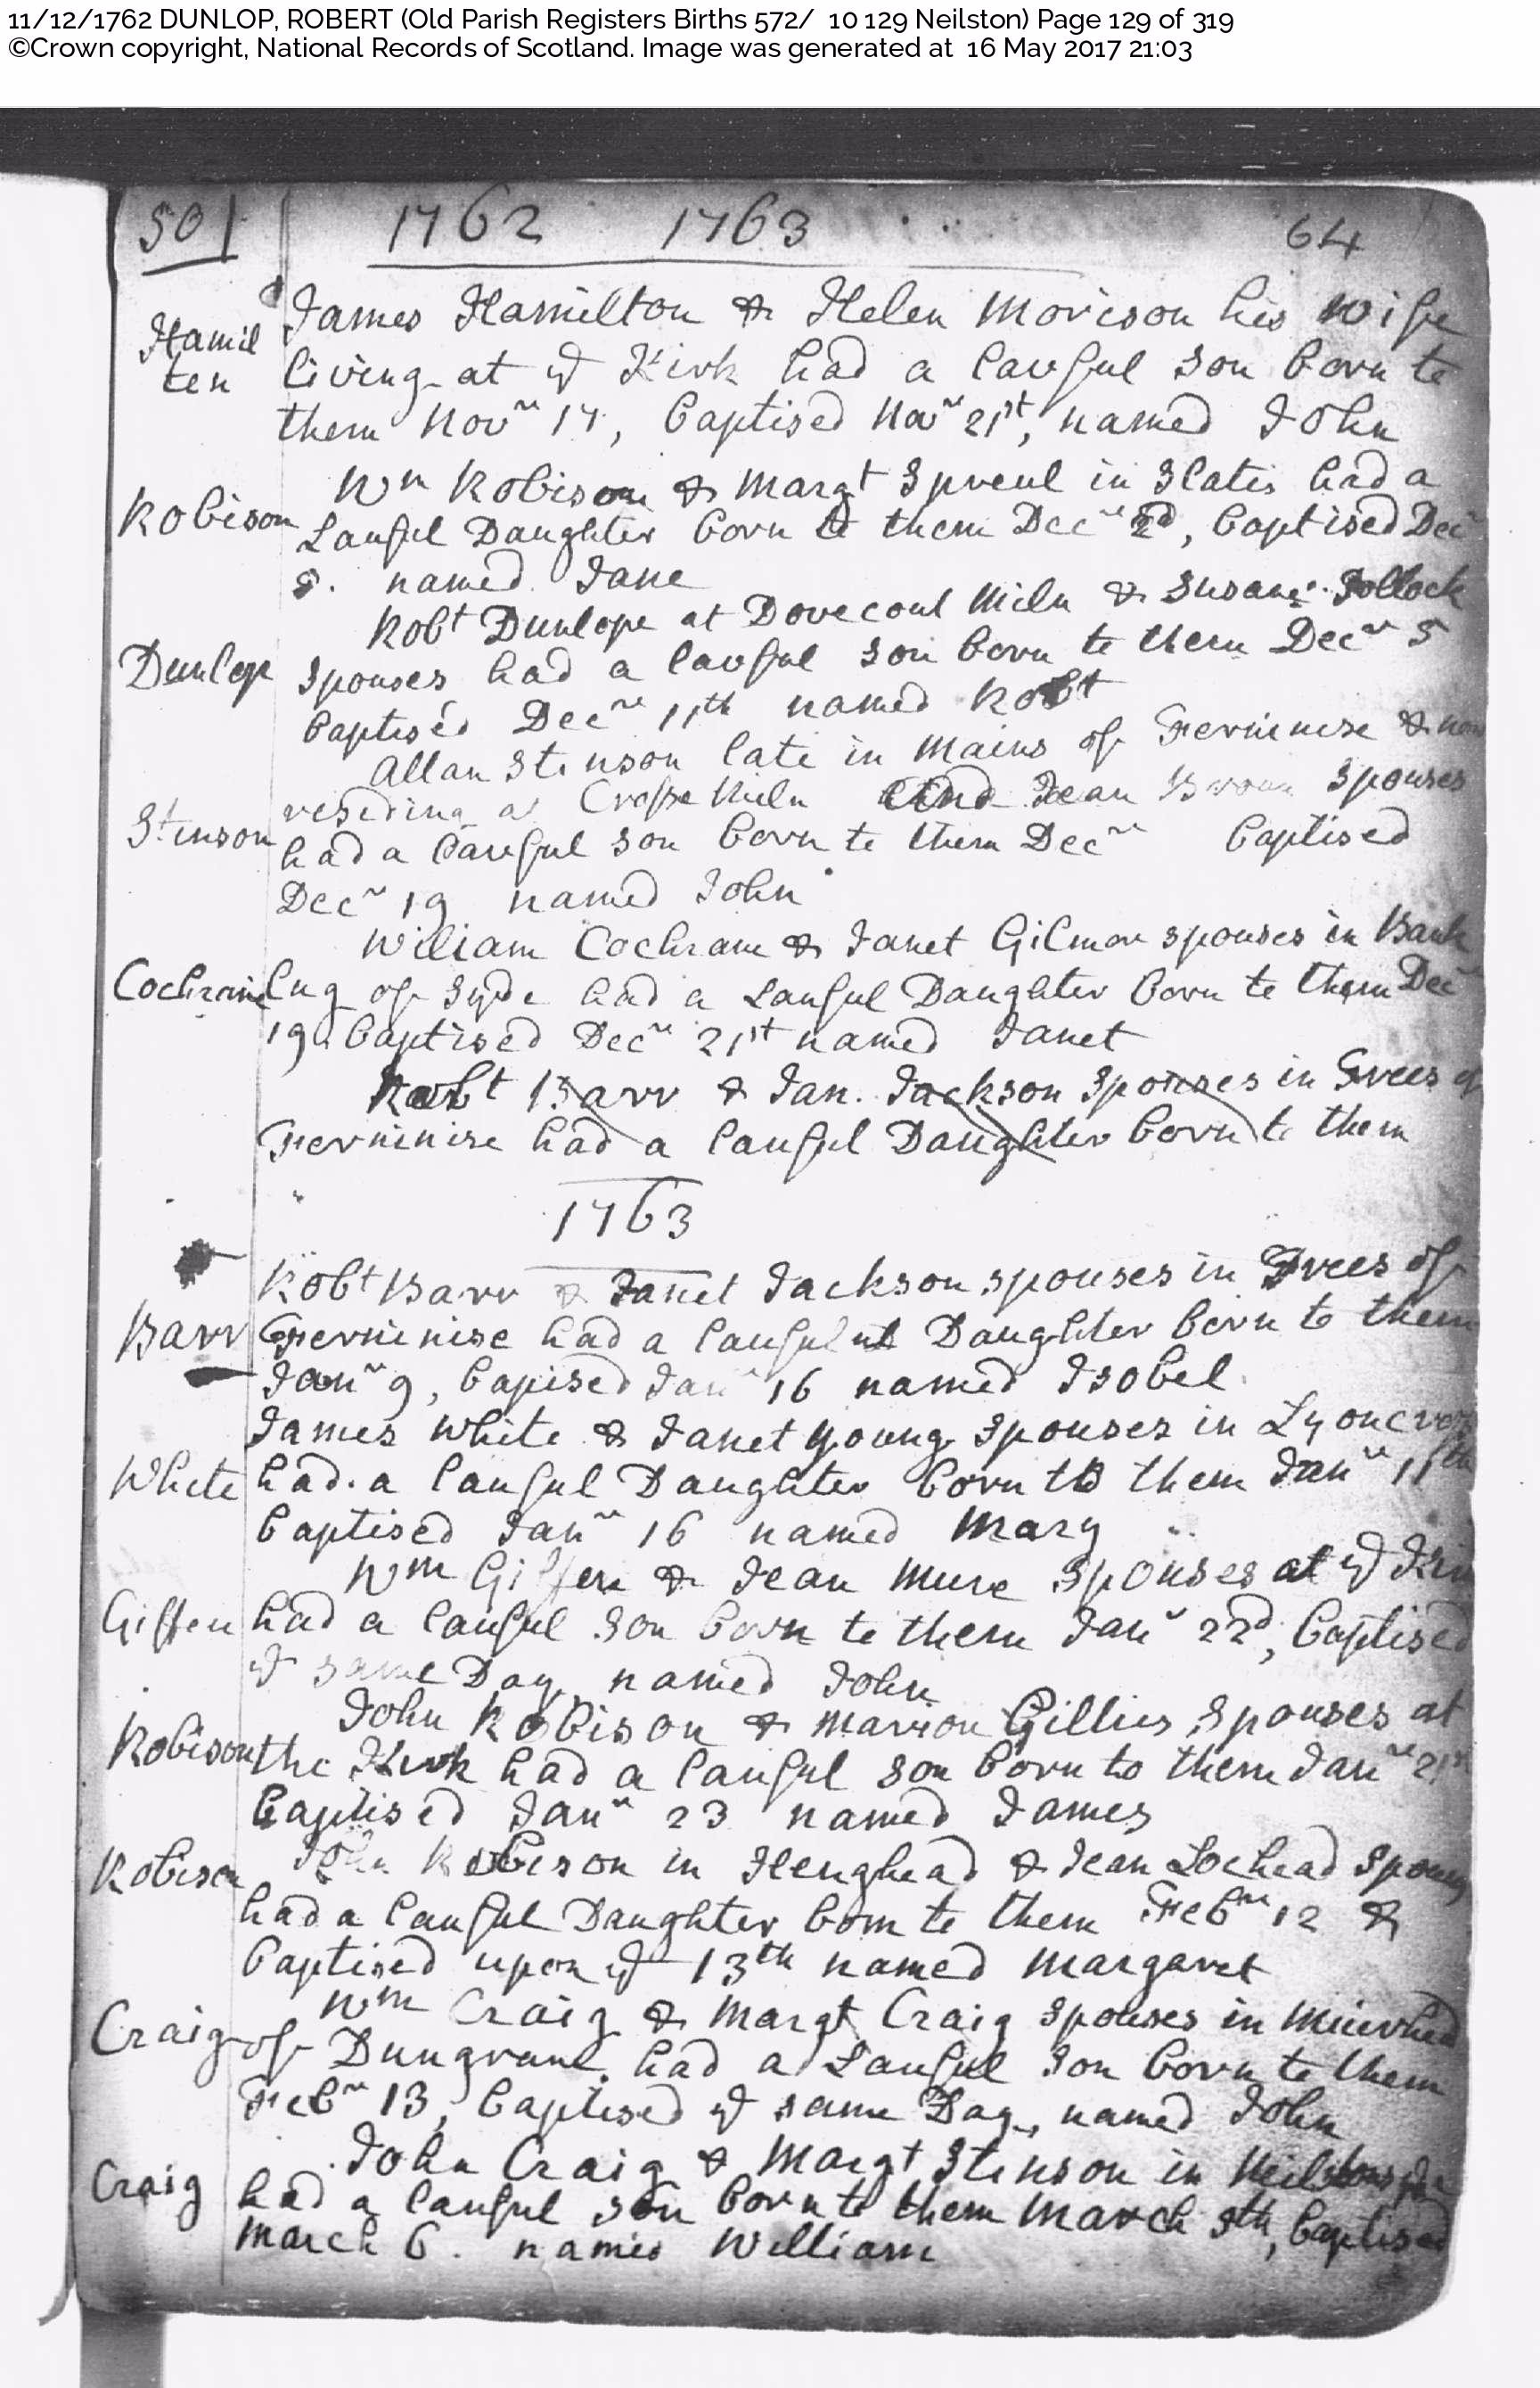 11/12/1762 DUNLOP, ROBERT (Old Parish Registers Births 572/ 10 129 Neilston) Page 129 of 319
©Crown copyright, National Records of Scotland. Image was generated at 16 May 2017 21:03
50 1762 1763 64
Hamil
ten
James Hamilton & Helen Morison his wife
living at ye Kirk had a lawful son born to
them Novr 17, baptised Novr 21st, named John
Robison
Wm Robison & Margt Spreul in Slates had a
Lauful Daughter born to them Decr 2d, baptised Decr
5. named Jane
Dunlop
Robt Dunlope at Dovecoat Miln & Susana Pollock
spouses had a lawful son born to them Decr 5
baptised Decr 11th named Robt
Stenson
Allan Stenson late in Mains of Ferninise & now
residing at Crosse Miln and Jean Broun spouses
had a lauful son born to them Decr baptised
Decr 19 named John
Cochrane
William Cochrane & Janet Gilmor spouses in Bank
lug of Syde had a Lauful Daughter born to them Decr
19 baptised Decr 21st named Janet
Robt Barr & Jan. Jackson spouses in Grees of
Ferninise had a lauful Daughter born to them
1763
Barr
Robt Barr & Janet Jackson spouses in Grees of
Ferninise had a lauful Daughter born to them
Janr 9, bapised Janr 16 named Isobel
White
James White & Janet Young spouses in Lyoncross
had a lauful Daughter born to them Janr 11th
baptised Janr 16 named Mary
Giffen
Wm Giffen & Jean Mure spouses at ye Kirk
had a lauful son born to them Janr 22d, baptised
ye same Day named John
Robison
John Robison & Marrion Gillies spouses at
the Kirk had a lauful son born to them Janr 21st
baptised Janr 23 named James
Robison
John Robison in Heughead & Jean Lochead spouses
had a lauful Daughter born to them Febr 12 &
baptised upon ye 13th named Margaret
Craig
Wm Craig & Margt Craig spouses in Muirhed
of Dungrane had a Lauful son born to them
Febr 13, baptised ye same Day, named John
Craig
John Craig & Margt Stenson in Neilstonside
had a lauful son born to them March 5th, baptised
March 6. names William